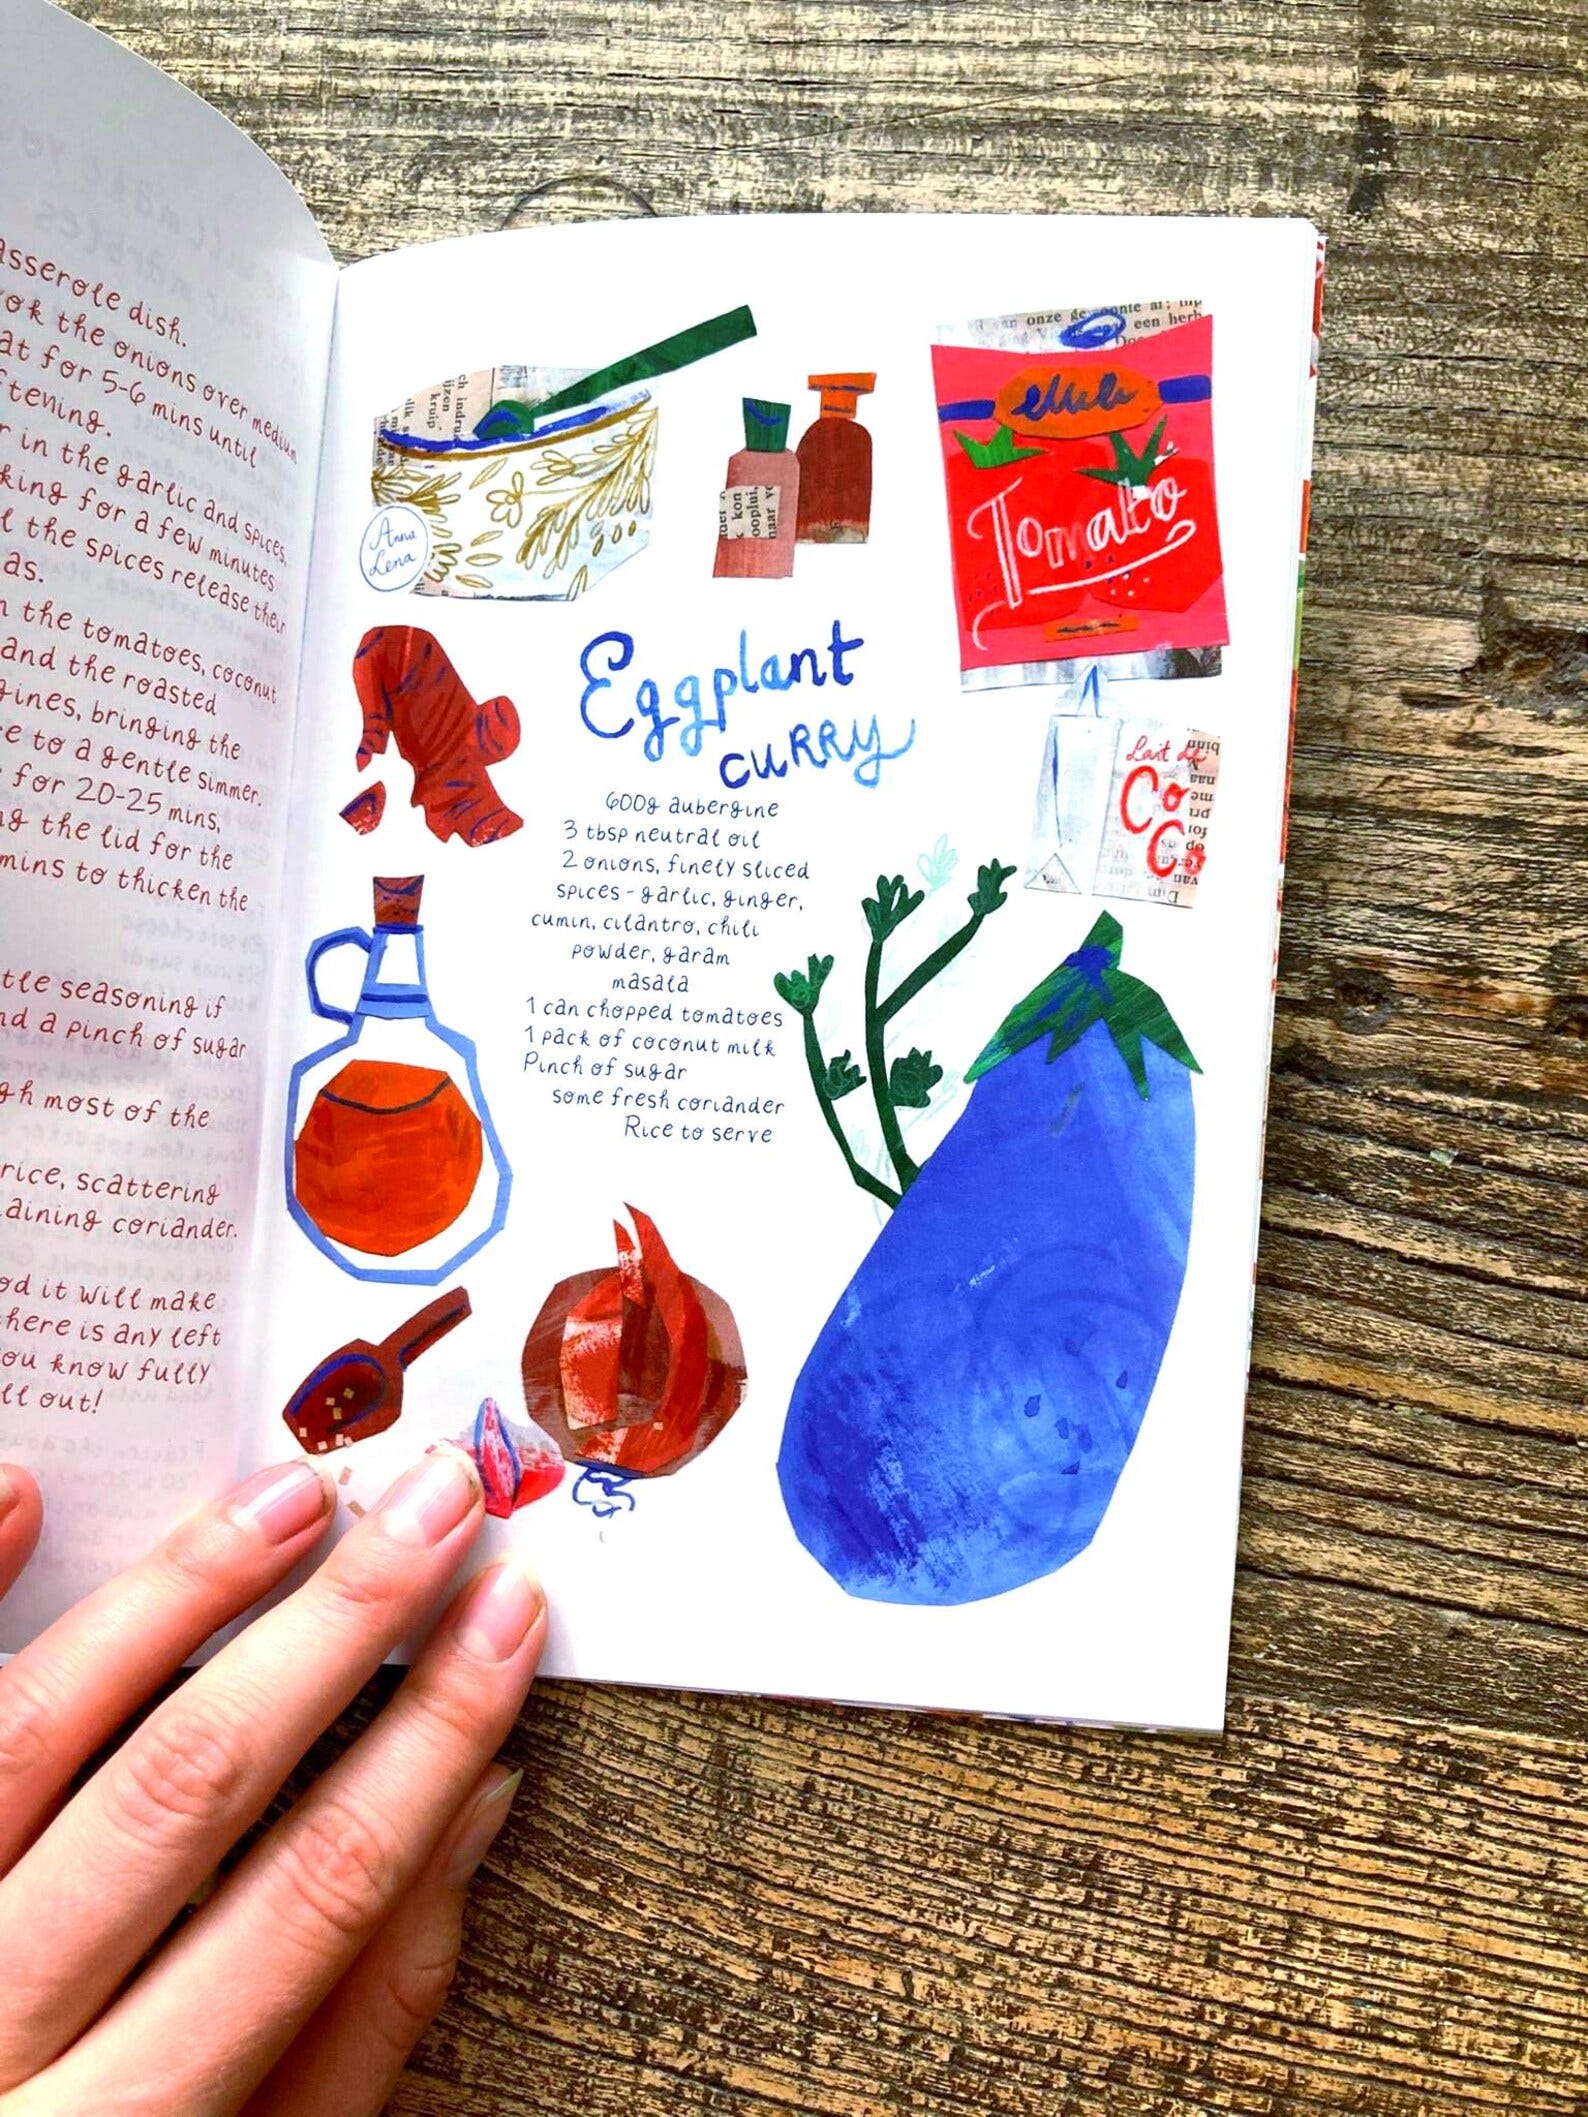 asserole dish.
ok the onions over medium
at for 5-6 mins until
ftening.
r in the garlic and spices,
king for a few minutes
l the spices release their
as.
n the tomatoes, coconut
and the roasted
gines, bringing the
e to a gentle simmer.
for 20-25 mins,
ng the lid for the
mins to thicken the
tle seasoning if
nd a pinch of sugar
gh most of the
rice, scattering
aining coriander.
od it will make
here is any left
ou know fully
ll out!
Anna
Lena
kruip
kon
ooplui,
naar
an onze gewoonte af;
een herb
Tomato
Lait de
Co
Co
Eggplant
CURRY
600g aubergine
3 tbsp neutral oil
2 onions, finely sliced
spices - garlic, ginger,
cumin, cilantro, chili
powder, garam
masala
1 can chopped tomatoes
1 pack of coconut milk
Pinch of sugar
some fresh coriander
Rice to serve